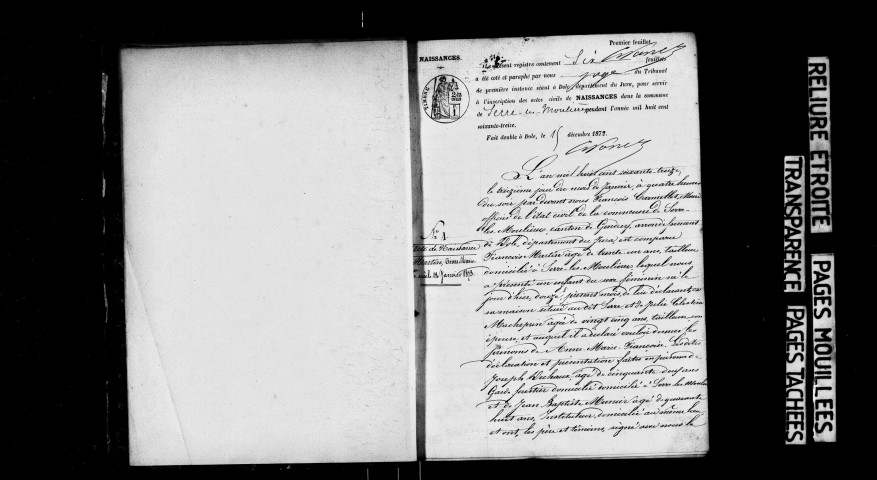 Premier feuillet.
NAISSANCES.
Le présent registre contenant Six feuillets
a été coté et paraphé par nous juge du Tribunal
de première instance séant à Dole, département du Jura, pour servir
à l'inscription des actes civils de NAISSANCES dans la commune
de Serre-les-Moulières pendant l'année mil huit cent
soixante-treize.
Fait double à Dole, le 15 décembre 1872.
TIMBRE
L'an mil huit cent soixante-treize,
le treizième jour du mois de Janvier, à quatre heures
du soir par devant nous François Maire
officier de l'état civil de la commune de Serre-
les-Moulières, canton de Gendrey, arrondissement
de Dole, département du Jura, est comparu
François Martin âgé de trente un ans, tailleur
domicilié à Serre-les-Moulières, lequel nous
a présenté un enfant du sexe féminin né le
jour d'hier, douze présent mois, de lui déclarant, en
sa maison située au dit Serre, et de Julie Célestine
âgée de vingt cinq ans, tailleuse, son
épouse, et auquel il a déclaré vouloir donner les
prénoms de Anne-Marie-Françoise. Lesdites
déclaration et présentation faites en présence de
Joseph âgé de cinquante ans
Garde forestier domicilié à Serre-les-Moulières
et de Jean Baptiste Meunier âgé de quarante
huit ans, Instituteur, domicilié au même lieu,
et ont, les père et témoins, signé avec nous le
N° 1
Acte de Naissance
Martin, Anne Marie
née le 12 Janvier 1873
RELIURE ETROITE
TRANSPARENCE
PAGES MOUILLEES
PAGES TACHEES